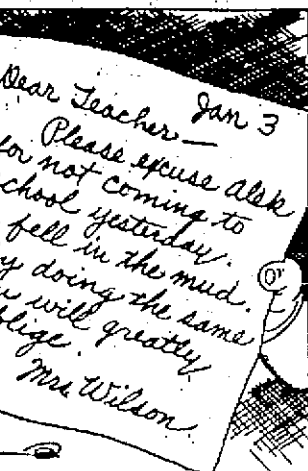 Jan 3
Dear Teacher —
Please excuse Alek
for not coming to
school yesterday.
fell in the mud.
doing the same
will greatly
oblige.
Mrs. Wilson